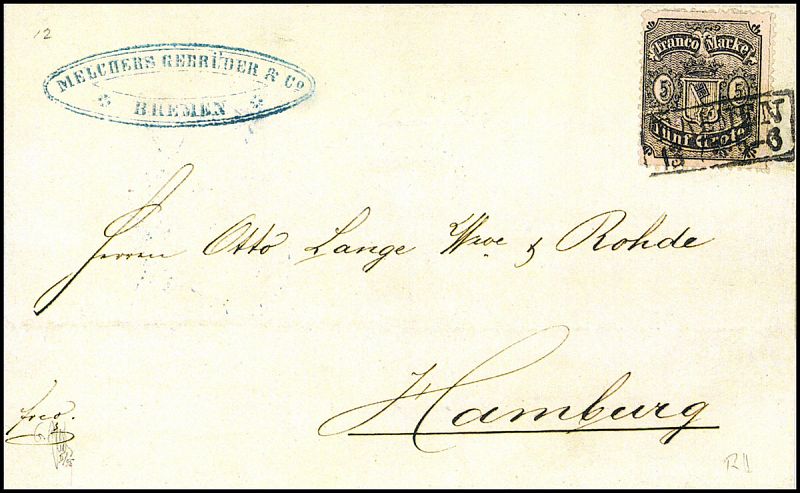 12
MELCHERS GEBRÜDER & Co
BREMEN
Franco Marke
5 5
Fünf Grote
Herren Otto Lange Wwe & Rohde
Hamburg
frco.